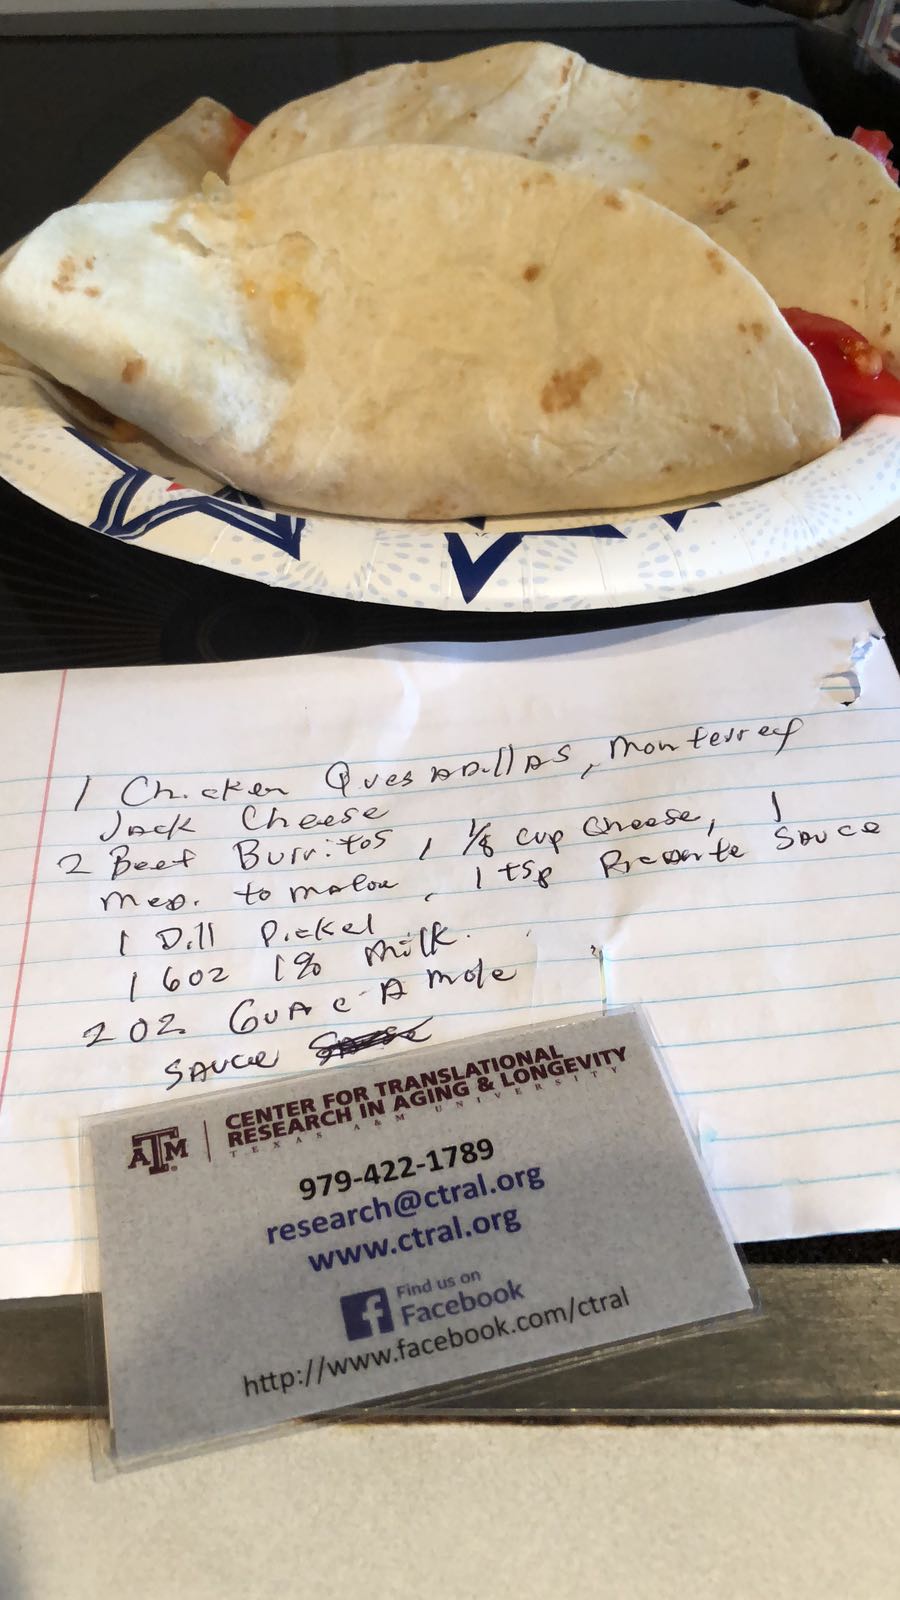 1 Chicken Quesadillas, Monterrey
Jack Cheese
2 Beef Burritos, 1/8 cup Cheese, 1
Med. tomatoe, 1 tsp Picante Sauce
1 Dill Pickel
1 6oz 1% Milk.
2 oz GUAC-A mole
SAUCE
ATM
CENTER FOR TRANSLATIONAL
RESEARCH IN AGING & LONGEVITY
TEXAS A&M UNIVERSITY
979-422-1789
research@ctral.org
www.ctral.org
Find us on
Facebook
http://www.facebook.com/ctral